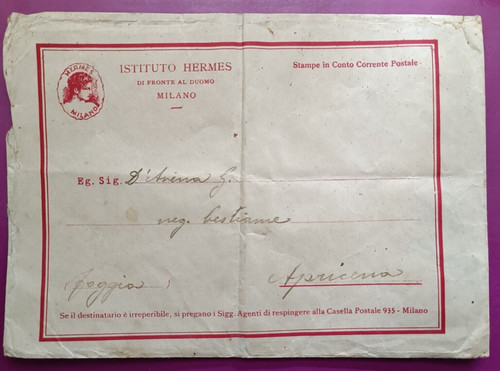 HERMES
MILANO
ISTITUTO HERMES
DI FRONTE AL DUOMO
MILANO
Stampe in Conto Corrente Postale
Eg. Sig. D'Avena G.
neg. bestiame
Foggia Apricena
Se il destinatario è irreperibile, si pregano i Sigg. Agenti di respingere alla Casella Postale 935 - Milano